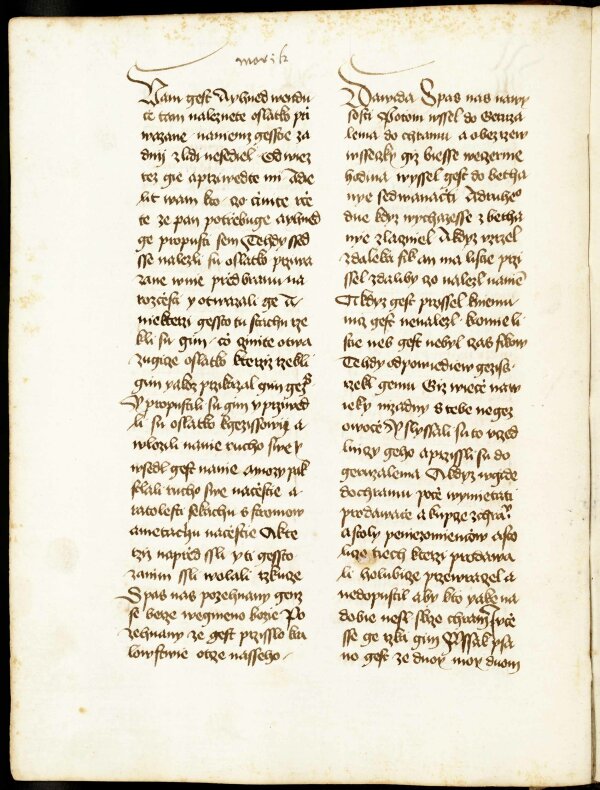 Nam gest Ayhned wendu
te tam naleznete oslatko pri
wazane namemz gessce za
dny z lidi nesediel Odwiez
tez gie aprziwedte mi Adie
lit wam kto czo cinite rce
te ze pan potrebuge ayhned
ge propusti sem Tehdy ssed
sse nalezli su oslatko przywa
zane wnie przed branu na
rozcesti y otwazali ge A
niekterzi gessto tu stachu rze
kli su gim czo cinite otwa
zugicze oslatko kterziz rzekli
gim yakoz przikazal gim gezs
Y propustili su gim y prziwed
li su oslatko kgezissowi a
wlozili nanie rucho swe y
wsedl gest nanie Amnozy pak
stlali rucho swe nacestie a
ratolesti sekachu s stromow
ametachu nacestie Akte
rzy naprzed ssli y ti gessto
zanim ssli wolali rzkucze
Spas nas pozehnany genz
se berze wegmeno bozie Po
zehnany ze gest przisslo kra
lowstwie otcze nasseho
Dawida Spas nas nawy
sosti Potom wssel do Geruza
lema do chramu a obezrzew
wsseczky giz biesse weczernie
hodina wyssel gest do betha
nye sedwanaczti Adruheho
dne kdyz wychazesse z betha
nye zlaczniel Akdyz vzrzel
zdaleka fik an ma listie przi
ssel zdaliby czo nalezl naniem
Akdyz gest przissel knemu
nicz gest nenalezl kromie li
stie neb gest nebyl czas fikow
Tehdy odpowiediew gezis
rzekl gemu Giz wiecze naw
ieky nizadny s tebe negez
owoce Y slyssali su to vczed
lniczy geho aprzissli su do
geruzalema Akdyz wgide
dochramu pocze wymietati
prodawacze akupcze zchramu
astoly peniezomiencow asto
licze tiech kterzi prodawa
li holubicze przewrazel a
nedopustil aby kto yake na
dobie nesl skrze chram Y vcze
sse ge rzka gim Wssak psa
no gest ze duom moy duom